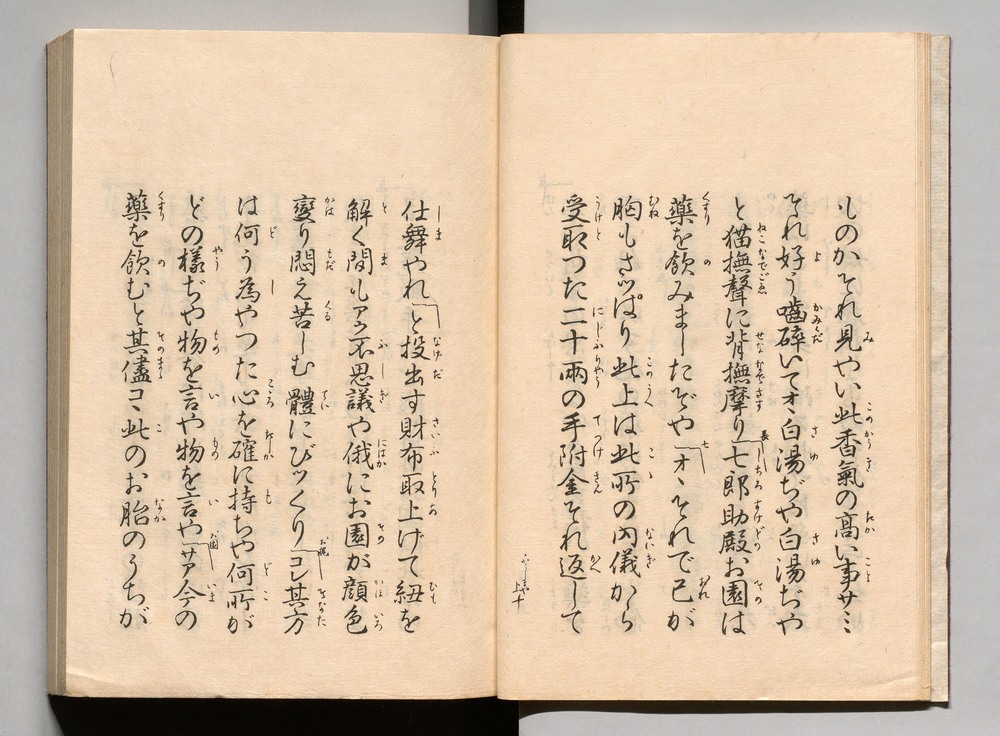 ものかそれ見やい此香氣の高い事サミミ
それ好う嚙碎いてオヽ白湯ぢや白湯ぢや
と猫撫聲に背撫摩り七郎助殿お園は
薬を飮みましたぞやオヽそれで己が
胸もさツぱり此上は此所の内儀から
受取つた二十兩の手附金それ返して
上十
仕舞やれと投出す財布取上げて紐を
解く間もアヽ不思議や俄にお園が顔色
變り悶え苦しむ體にびツくりコレ其方
は何う為やつた心を確に持ちや何所が
どの樣ぢや物を言や物を言やサア今の
薬を飮むと其儘コヽ此のお胎のうちが